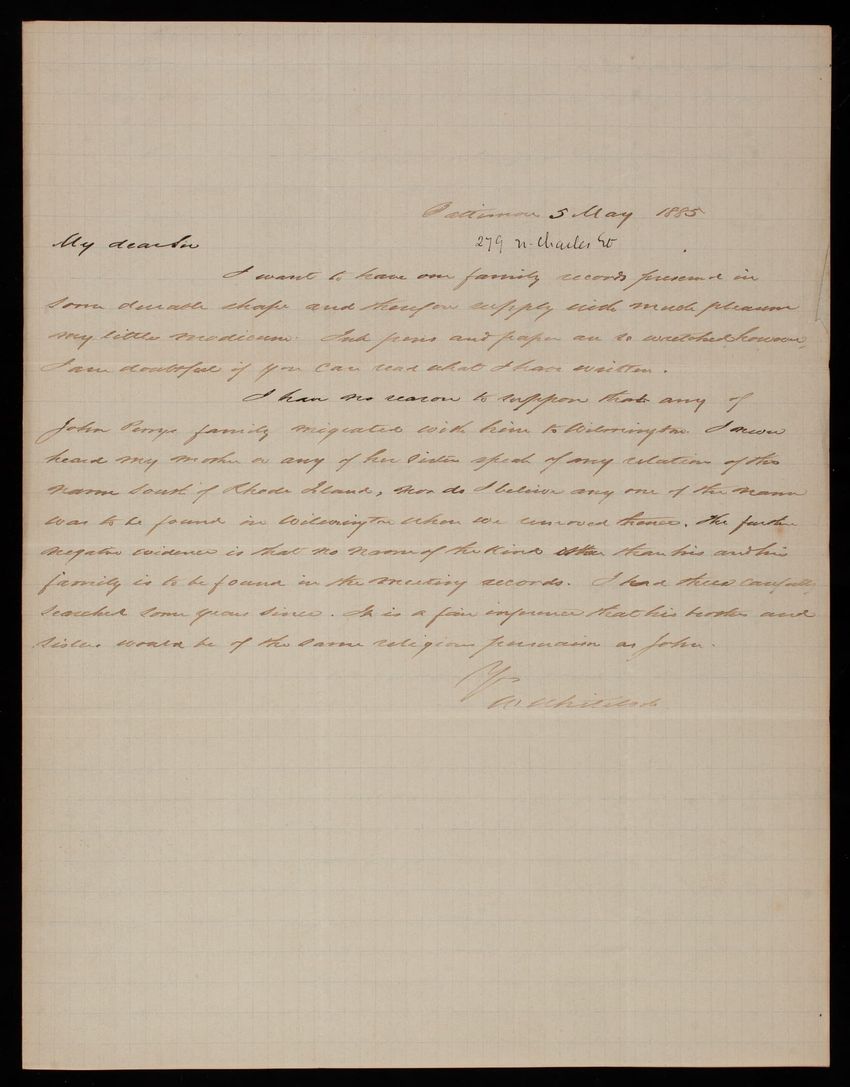 Baltimore 5 May 1885
279 N. Charles St
My dear Sir
I want to have our family records preserved in
some durable shape and therefore supply with much pleasure
my little modicum. Ink pens and paper are so wretched, however,
I am doubtful if you can read what I have written.
I have no reason to suppose that any of
John Perrys family migrated with him to Wilmington. I never
heard my mother or any of her sisters speak of any relation of this
name south of Rhode Island, nor do I believe any one of the name
was to be found in Wilmington when we removed thence. The further
negative evidence is that no name of the kind other than his and his
family is to be found in the meeting records. I had these carefully
searched some years since. It is a fair inference that his brothers and
sisters would be of the same religious persuasion as John.
Yrs